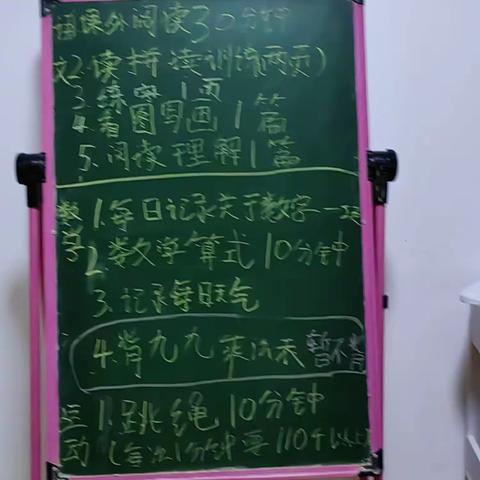 语 课外阅读30分钟
文 2.读拼读训练(两页)
3.练字1页
4.看图写画1篇
5.阅读理解1篇
数 1.每日记录关于数字一项
学 2.数学算式10分钟
3.记录每日天气
4.背九九乘法表 暂不背
运 1.跳绳10分钟
动 (每次1分钟要110个以上)